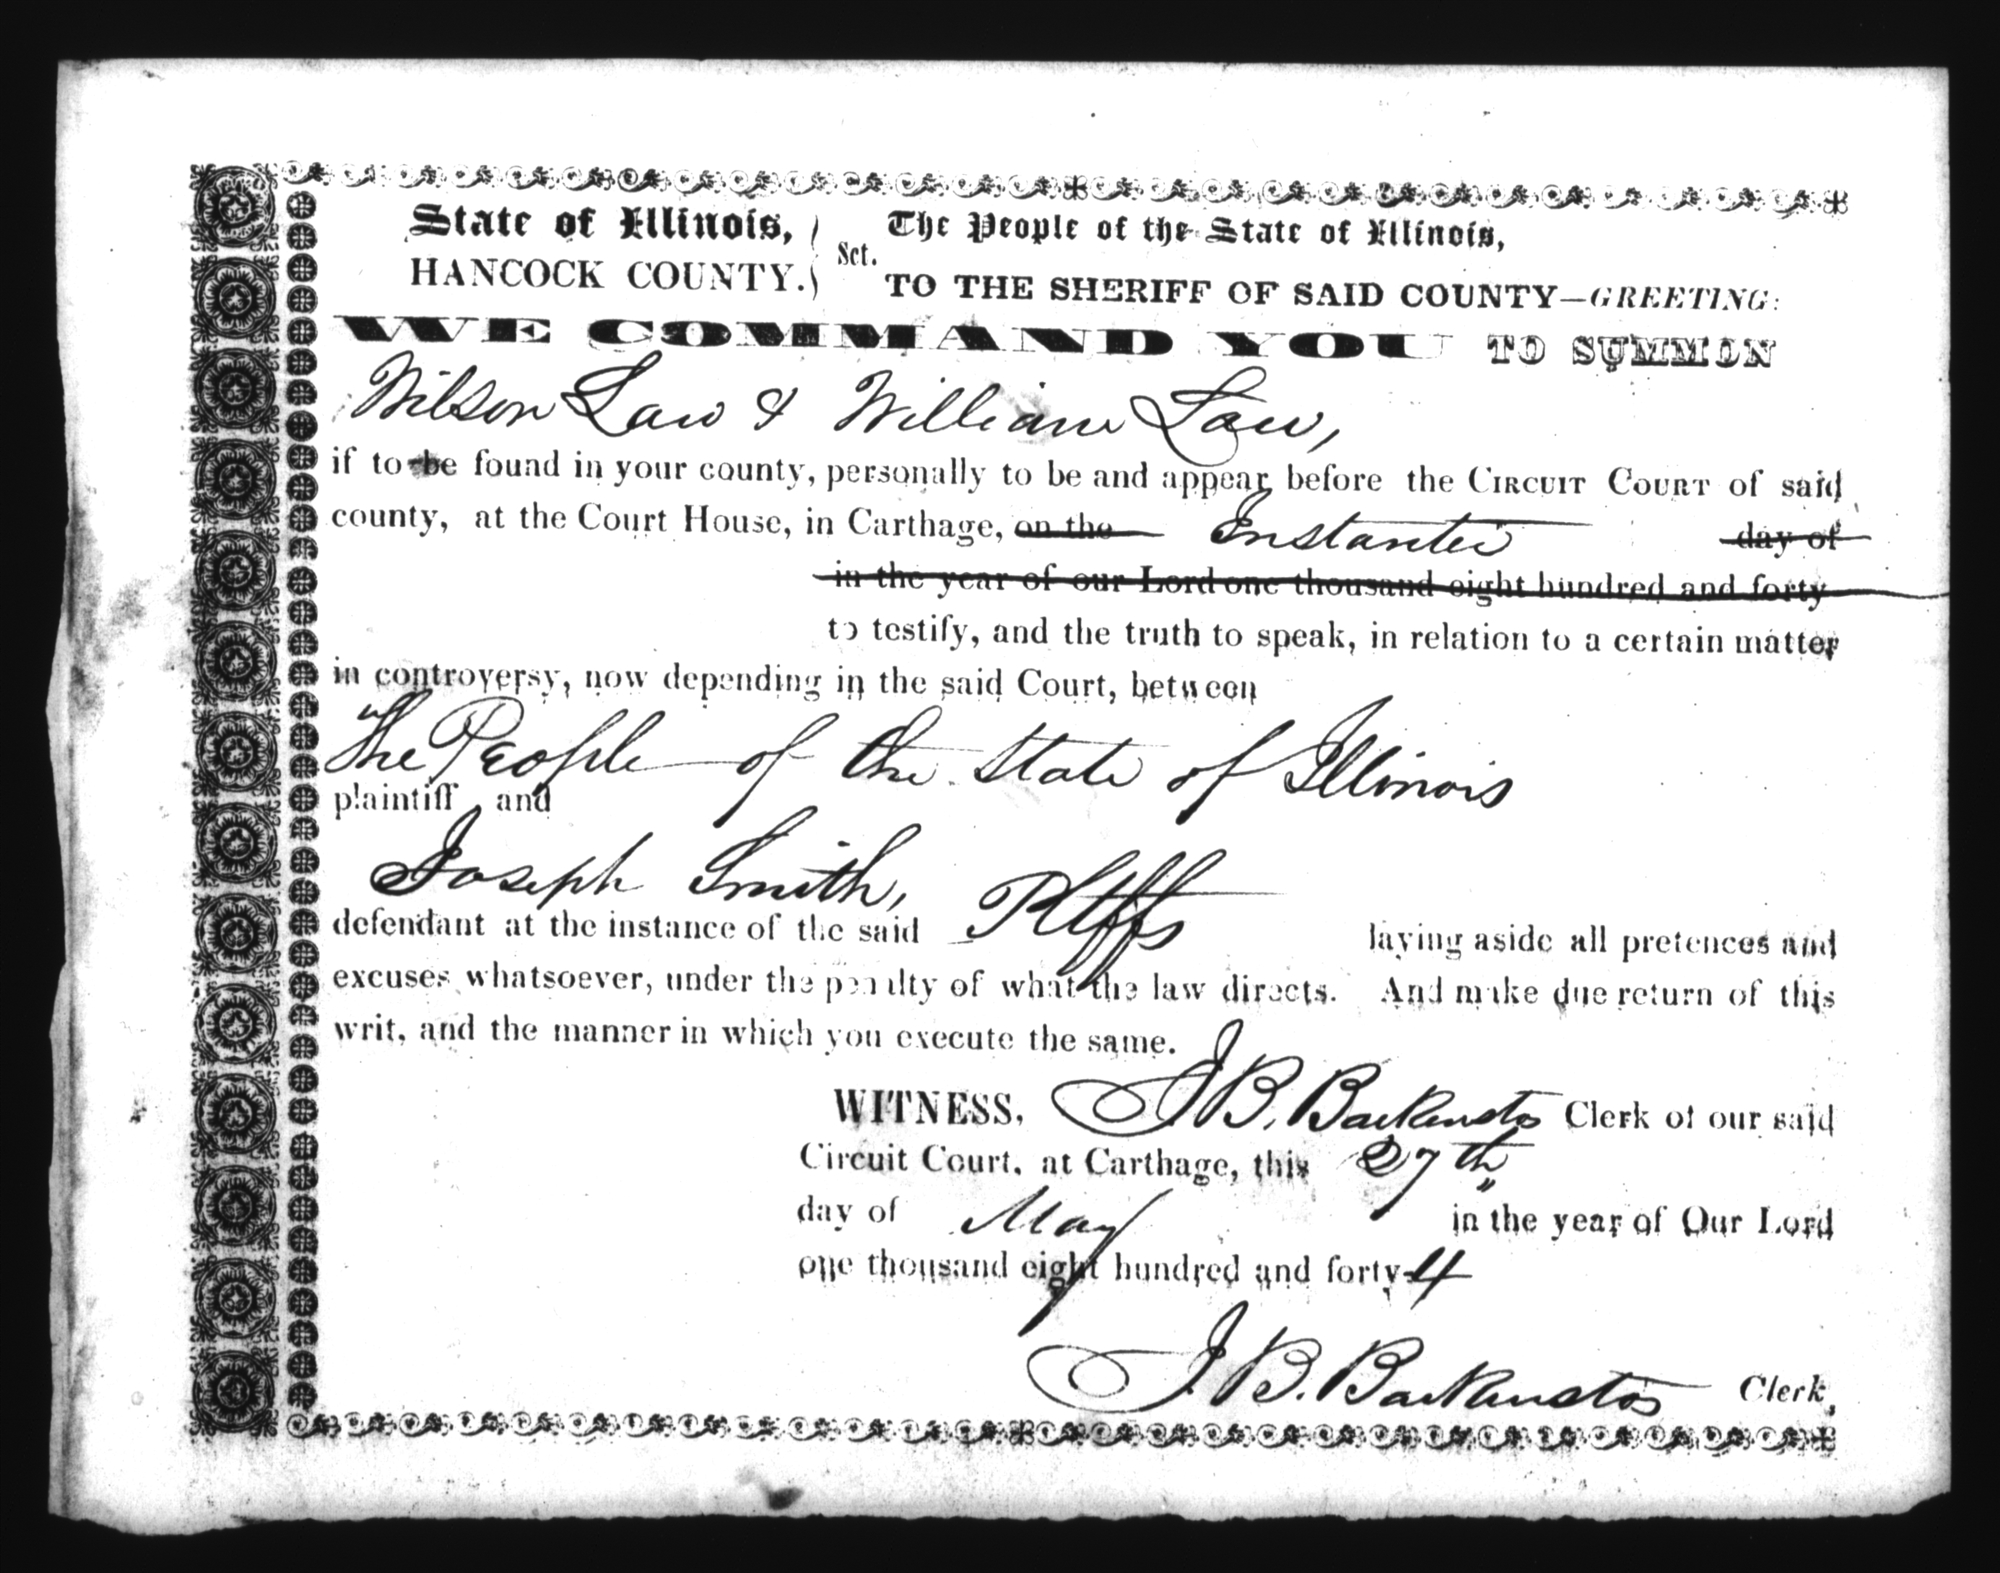 State of Illinois, } Sct. The People of the State of Illinois,
HANCOCK COUNTY. } TO THE SHERIFF OF SAID COUNTY—GREETING:
WE COMMAND YOU TO SUMMON
Wilson Law & William Law,
if to be found in your county, personally to be and appear before the CIRCUIT COURT of said
county, at the Court House, in Carthage, on the Instanter day of
in the year of our Lord one thousand eight hundred and forty
to testify, and the truth to speak, in relation to a certain matter
in controversy, now depending in the said Court, between
The People of the State of Illinois
plaintiff and
Joseph Smith,
defendant at the instance of the said Pltffs laying aside all pretences and
excuses whatsoever, under the penalty of what the law directs. And make due return of this
writ, and the manner in which you execute the same.
WITNESS, J B. Backenstos Clerk of our said
Circuit Court, at Carthage, this 27th
day of May in the year of Our Lord
one thousand eight hundred and forty-4
J. B. Backenstos Clerk,